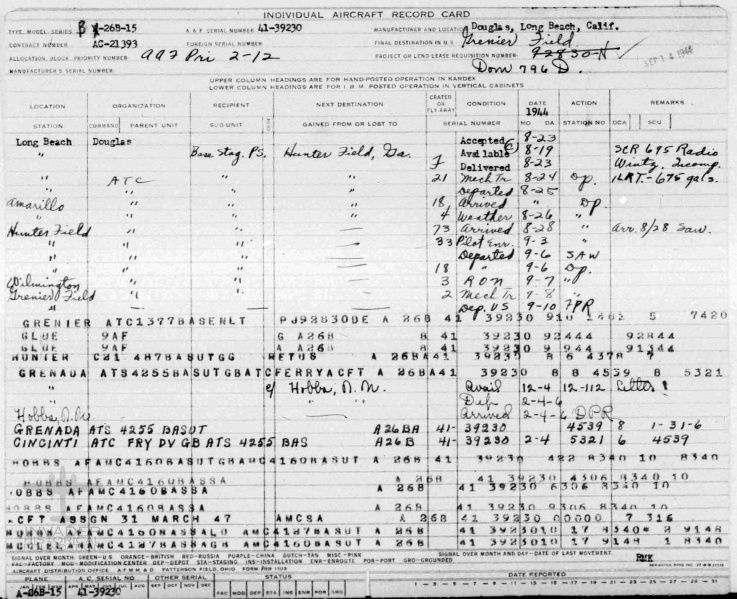 INDIVIDUAL AIRCRAFT RECORD CARD
TYPE, MODEL SERIES B A-26B-15 A.A.F SERIAL NUMBER 41-39230 MANUFACTURER AND LOCATION Douglas, Long Beach, Calif.
CONTRACT NUMBER AC-21393 FOREIGN SERIAL NUMBER FINAL DESTINATION IN U.S. Grenier Field
ALLOCATION BLOCK PRIORITY NUMBER AAF Pri 2-12 PROJECT OR LEND LEASE REQUISITION NUMBER 92830-N SEP 14 1944
MANUFACTURER'S SERIAL NUMBER Dom 796 D.
UPPER COLUMN HEADINGS ARE FOR HAND-POSTED OPERATION IN KARDEX
LOWER COLUMN HEADINGS ARE FOR I.B.M. POSTED OPERATION IN VERTICAL CABINETS
LOCATION ORGANIZATION RECIPIENT NEXT DESTINATION CRATED OR FLY AWAY CONDITION DATE 1944 ACTION REMARKS
STATION COMMAND PARENT UNIT SUB-UNIT GAINED FROM OR LOST TO SERIAL NUMBER MO DA STATION NO DEA SEU
Long Beach Douglas Accepted 8-23
" Base Stag. P.S. Hunter Field, Ga. Available 8-19 SCR 695 Radio
" " " " 7 Delivered 8-23 Wintz. Incomp.
" ATC " " 21 Mech Tr 8-24 Dp. 1LRT-675 gals.
" " " " Departed 8-25
Amarillo " " " 18 Arrived " Dp.
" " " " 4 Weather 8-26 "
Hunter Field " " 73 Arrived 8-28 " Arr. 8/28 Saw.
" " " 33 Pilot Enr. 9-3 "
" " " Departed 9-6 SAW
" " " 18 " 9-6 Dp.
Wilmington " " 3 RON 9-7 "
Grenier Field " " 2 Mech Tr 9-8 "
" " " Dep. US 9-10 FPR
GRENIER ATC1377BASENLT PJ92830BE A 26B 41 39230 910 1482 5 7420
GLUE 9AF G A26B 8 41 39230 92444 92844
GLUE 9AF A A26B 8 41 39230 9 944 91344
HUNTER C21 487BASUTGG RETUS A 26BA 41 39230 8 6 4378 7
GRENADA ATS4255BASUTGBATCFERRYACFT A 26BA 41 39230 8 8 4539 8 5321
" c/ Hobbs, N.M. Avail 12-4 12-112
" " " Dep 2-4-6
Hobbs, N.M. Arrived 2-4-6 DPR
GRENADA ATS 4255 BASUT A26BA 41- 39230 4539 8 1-31-6
CINCINTI ATC FRY DV GB ATS 4255 BAS A26B 41- 39230 2-4 5321 6 4539
HOBBS AFAMC4160BASUTGBAMC4160BASUT A 26B 41 39230 422 8340 10 8340
HOBBS AFAMC4160BASSA A 26B 41 39230 4306 8340 10
HOBBS AFAMC4160BASSA A 26B 41 39230 6306 8340 10
HOBBS AFAMC4160BASSA A 26B 41 39230 9306 8340 10
ACFT ASSGN 31 MARCH 47 AMCSA A 26B 41 39230 00000 7 316
AFAMC4160BASSALO AMC4127BASUT A 26B 41 3923010 17 8340 8 9148
MCCLELAN AFAMC4127BASAGH AMC4160BASUT A 26B 41 3923010 17 9148 1 8340
SIGNAL OVER MONTH GREEN-U.S ORANGE-BRITISH RED-RUSSIA PURPLE-CHINA DUTCH-TAN MISC-PINK SIGNAL OVER MONTH AND DAY-DATE OF LAST MOVEMENT.
FAC-FACTORY MOD-MODIFICATION CENTER DEP-DEPOT STA-STAGING INS-INSTALLATION ENR-ENROUTE POR-PORT GRO-GROUNDED
AIRCRAFT DISTRIBUTION OFFICE A.F.M.M.D. PATTERSON FIELD, OHIO
PLANE A.C. SERIAL NO OTHER SERIAL STATUS DATE REPORTED
A-26B-15 41-39230 FAC MOD DEP STA INS ENR POR GRO